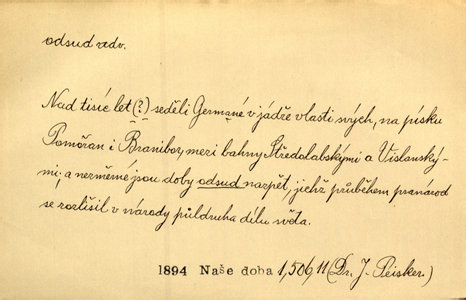 odsud adv.
Nad tisíc let (?) seděli Germané v jádře vlasti svých, na písku
Pomořan i Branibor, mezi bahny Středolabskými a Vislanský-
mi; a nerměrné jsou doby odsud nazpět, jichž průběhem pranárod
se rozlišil v národy půldruha dílu světa.
1894 Naše doba 1,506,11 (Dr. J. Peisker.)